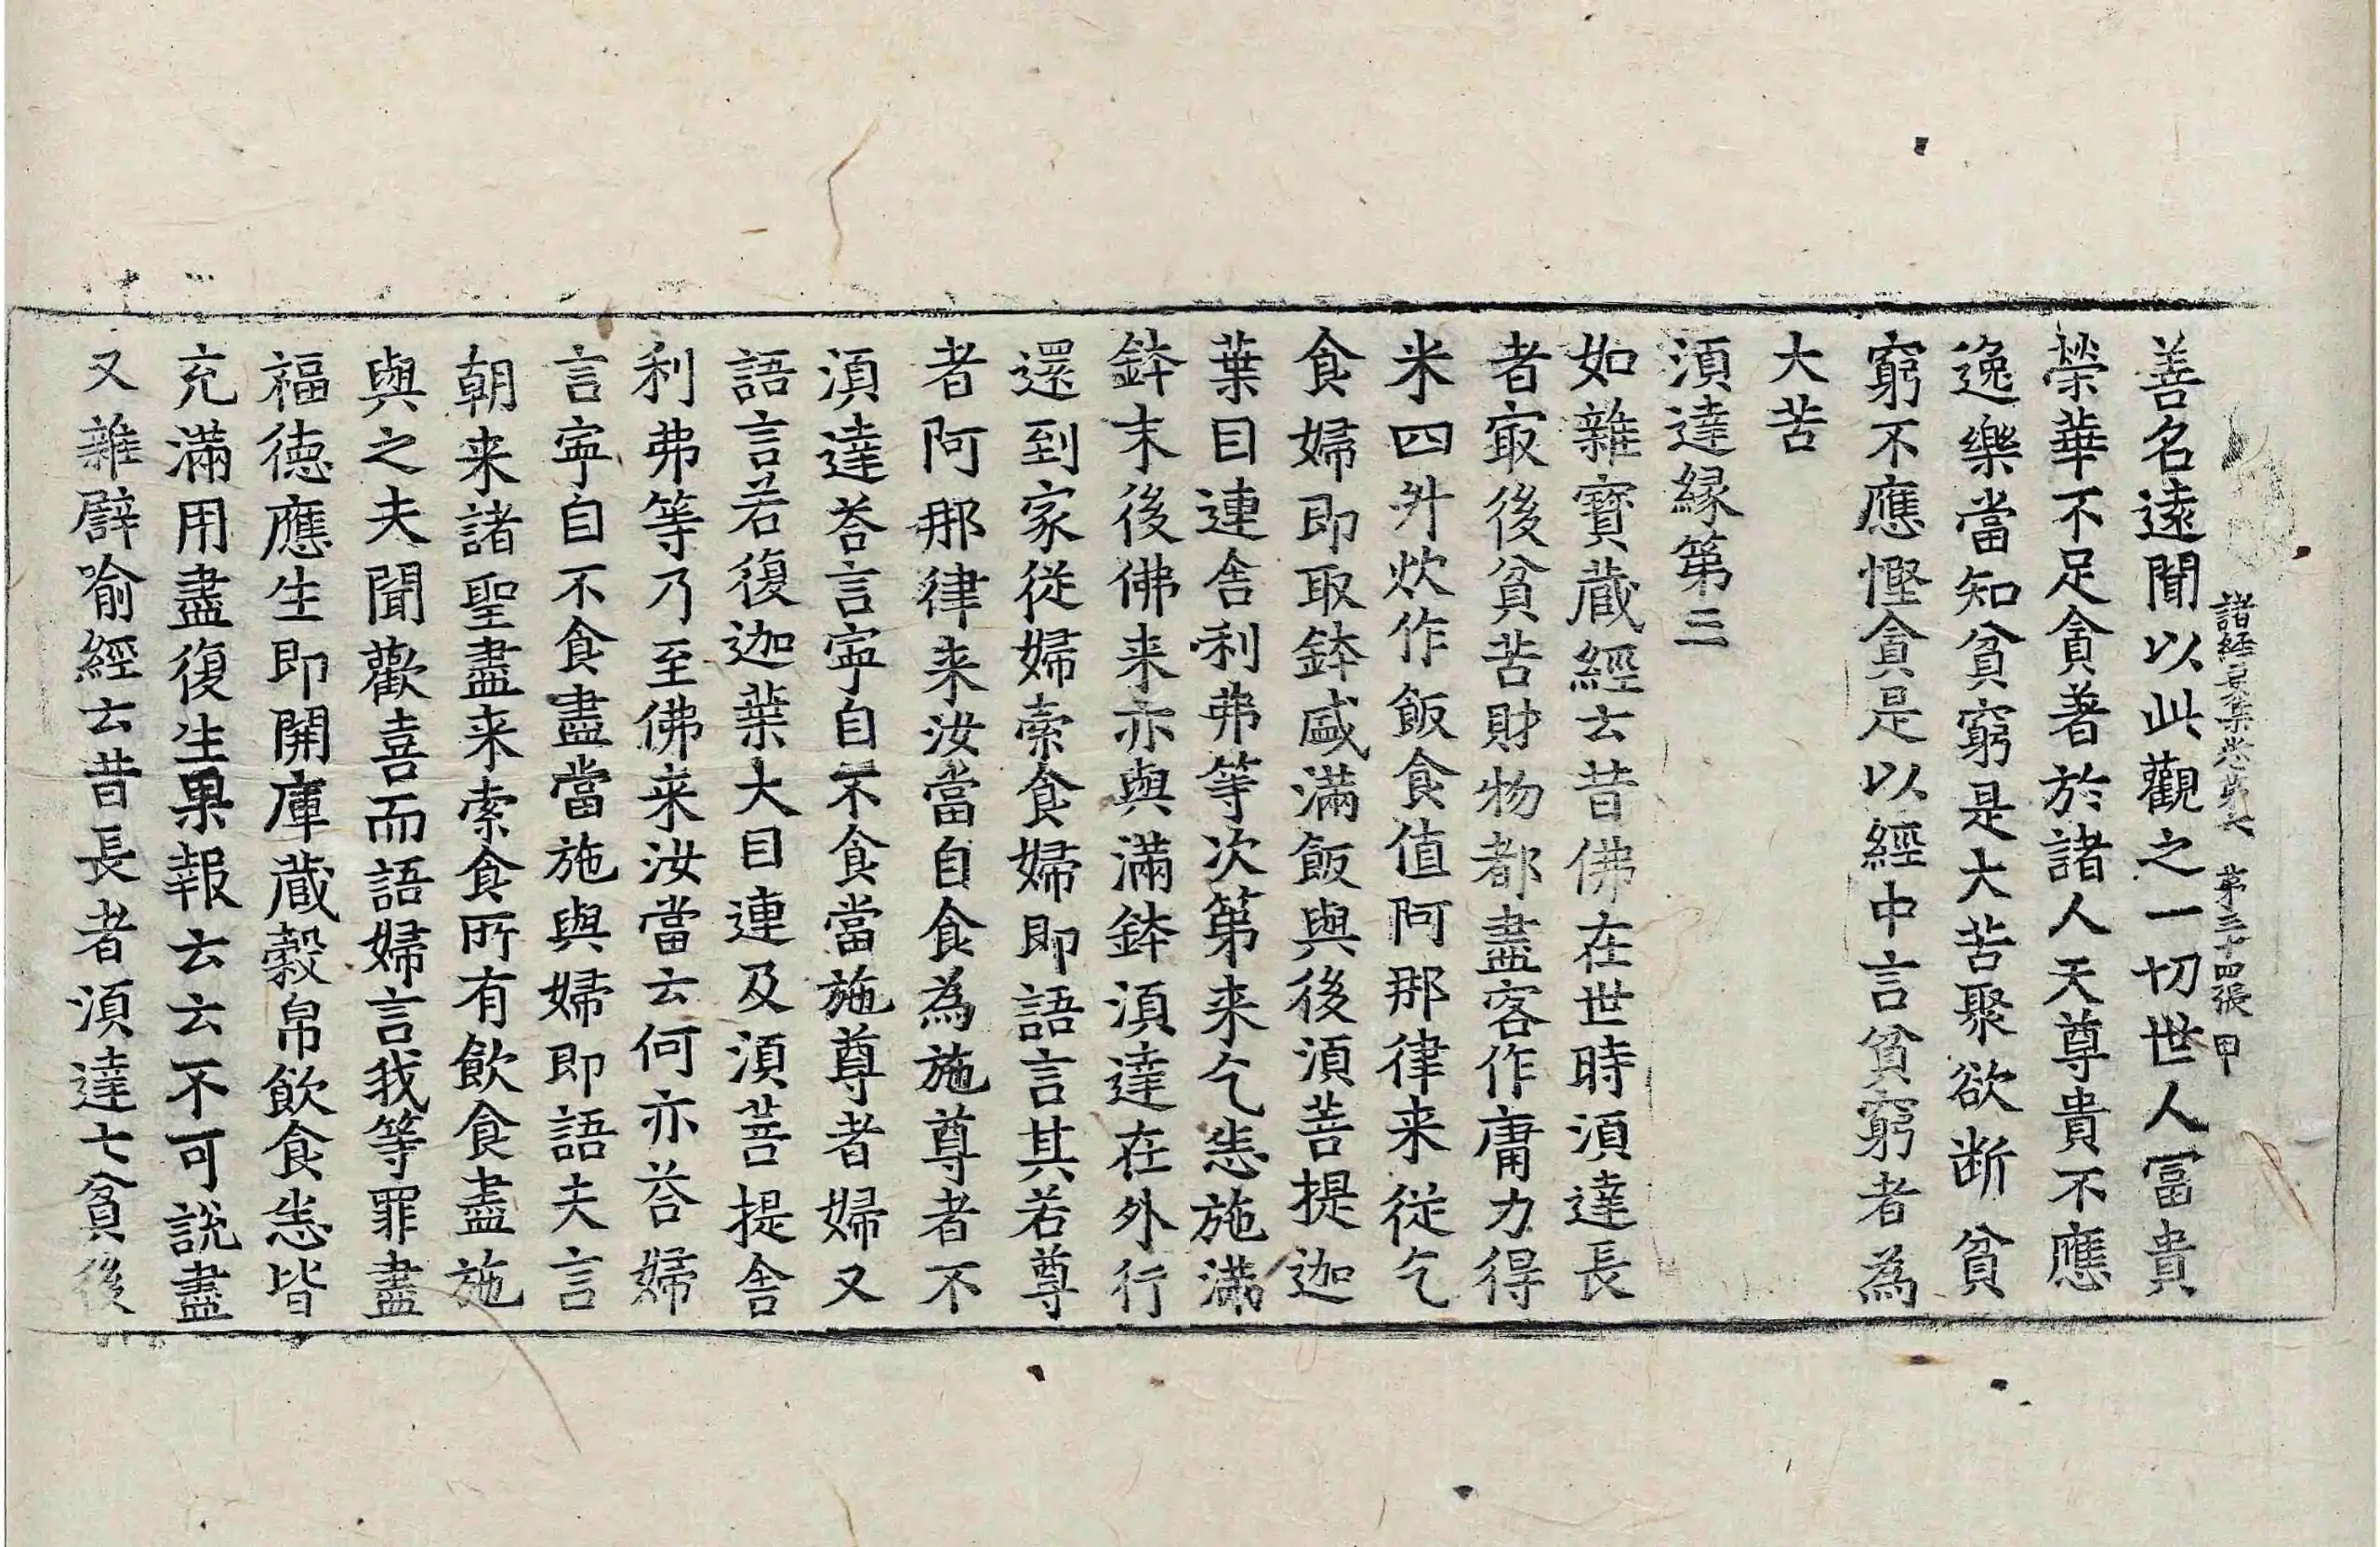 諸經要集卷第六　第三十四張　甲
善名遠聞以此觀之一切世人冨貴
榮華不足貪著於諸人天尊貴不應
逸樂當知貧窮是大苦聚欲断貧
窮不應慳貪是以經中言貧窮者為
大苦
湏達縁第三
如雜寳蔵經云昔佛在世時湏達長
者㝡後貧苦財物都盡客作庸力得
米四升炊作飯食值阿那律来従乞
食婦即取鉢盛滿飯與後湏菩提迦
葉目連舎利弗等次第来乞悉施滿
鉢末後佛来亦與滿鉢湏達在外行
還到家従婦索食婦即語言其若尊
者阿那律来汝當自食為施尊者不
湏達荅言寧自不食當施尊者婦又
語言若復迦葉大目連及湏菩提舎
利弗等乃至佛来汝當云何亦荅婦
言寧自不食盡當施與婦即語夫言
朝来諸聖盡来索食所有飲食盡施
與之夫聞歡喜而語婦言我等罪盡
福徳應生即開庫蔵穀帛飲食悉皆
充滿用盡復生果報云云不可說盡
又雜譬喻經云昔長者湏達七貧後